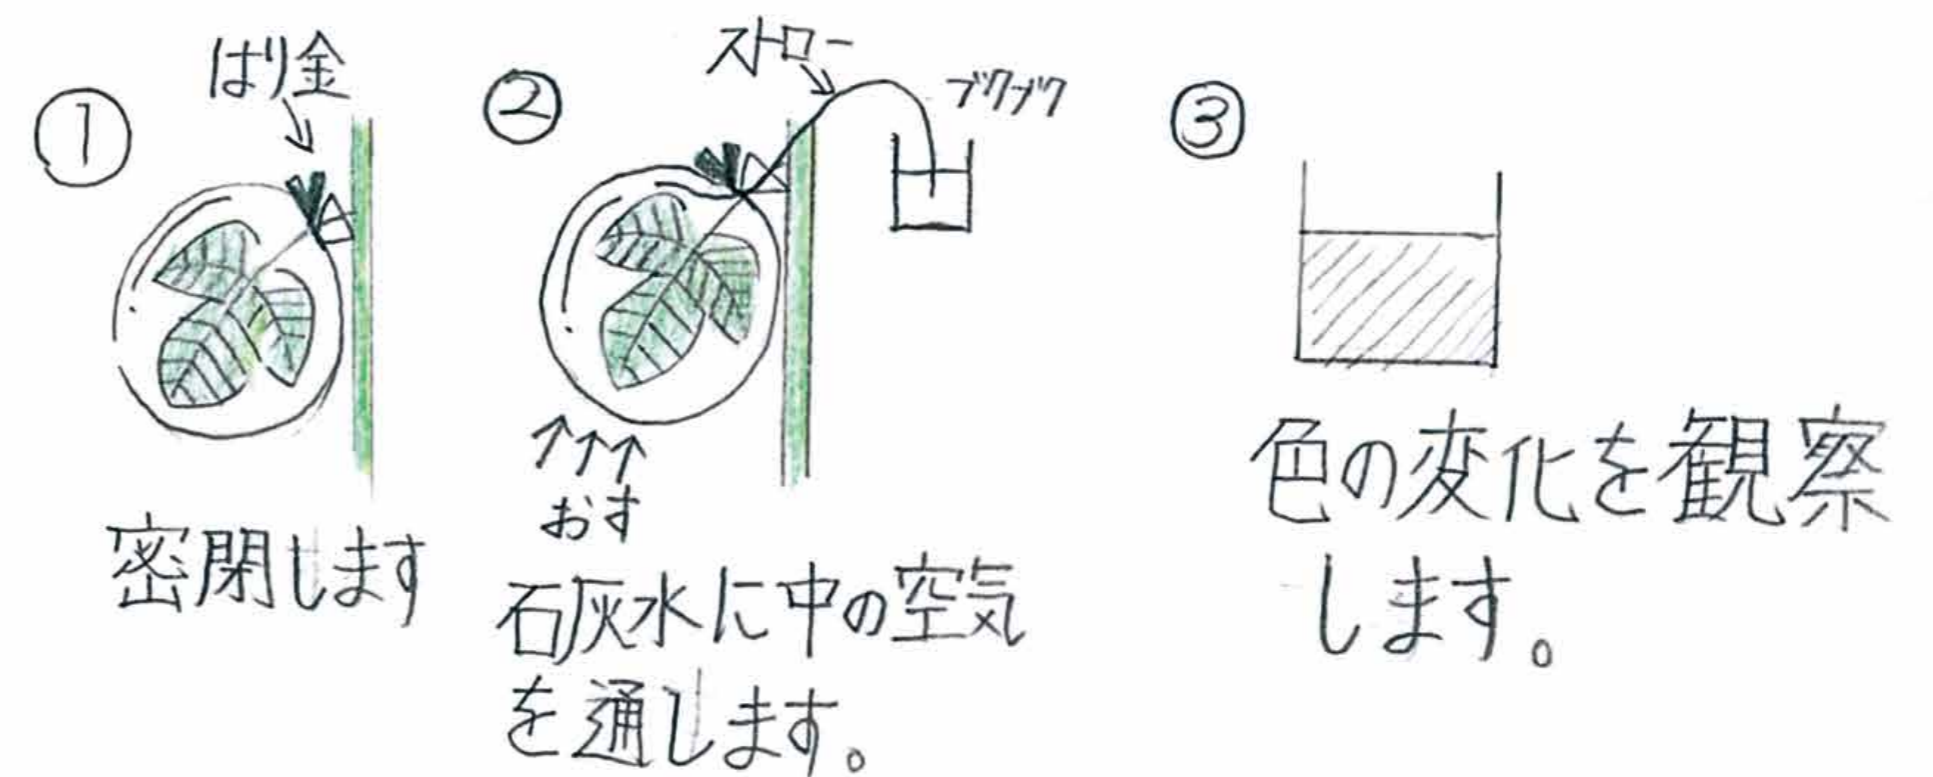 ①
はり金
密閉します
②
ストロー
ブクブク
おす
石灰水に中の空気
を通します。
③
色の変化を観察
します。